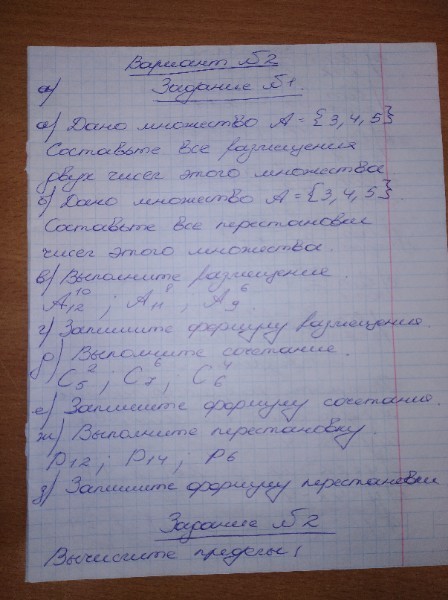 Вариант №2
а) Задание №1.
а) Дано множество A = {3, 4, 5}
Составьте все размещения
двух чисел этого множества
б) Дано множество A = {3, 4, 5}.
Составьте все перестановки
чисел этого множества.
в) Выполните размещение.
A₁₂¹⁰; A₁₁⁸; A₉⁶.
г) Запишите формулу размещения.
д) Выполните сочетание.
C₅²; C₇⁶; C₆⁴
е) Запишите формулу сочетания.
ж) Выполните перестановку.
P₁₂; P₁₄; P₆
з) Запишите формулу перестановки
Задание №2
Вычислите пределы: